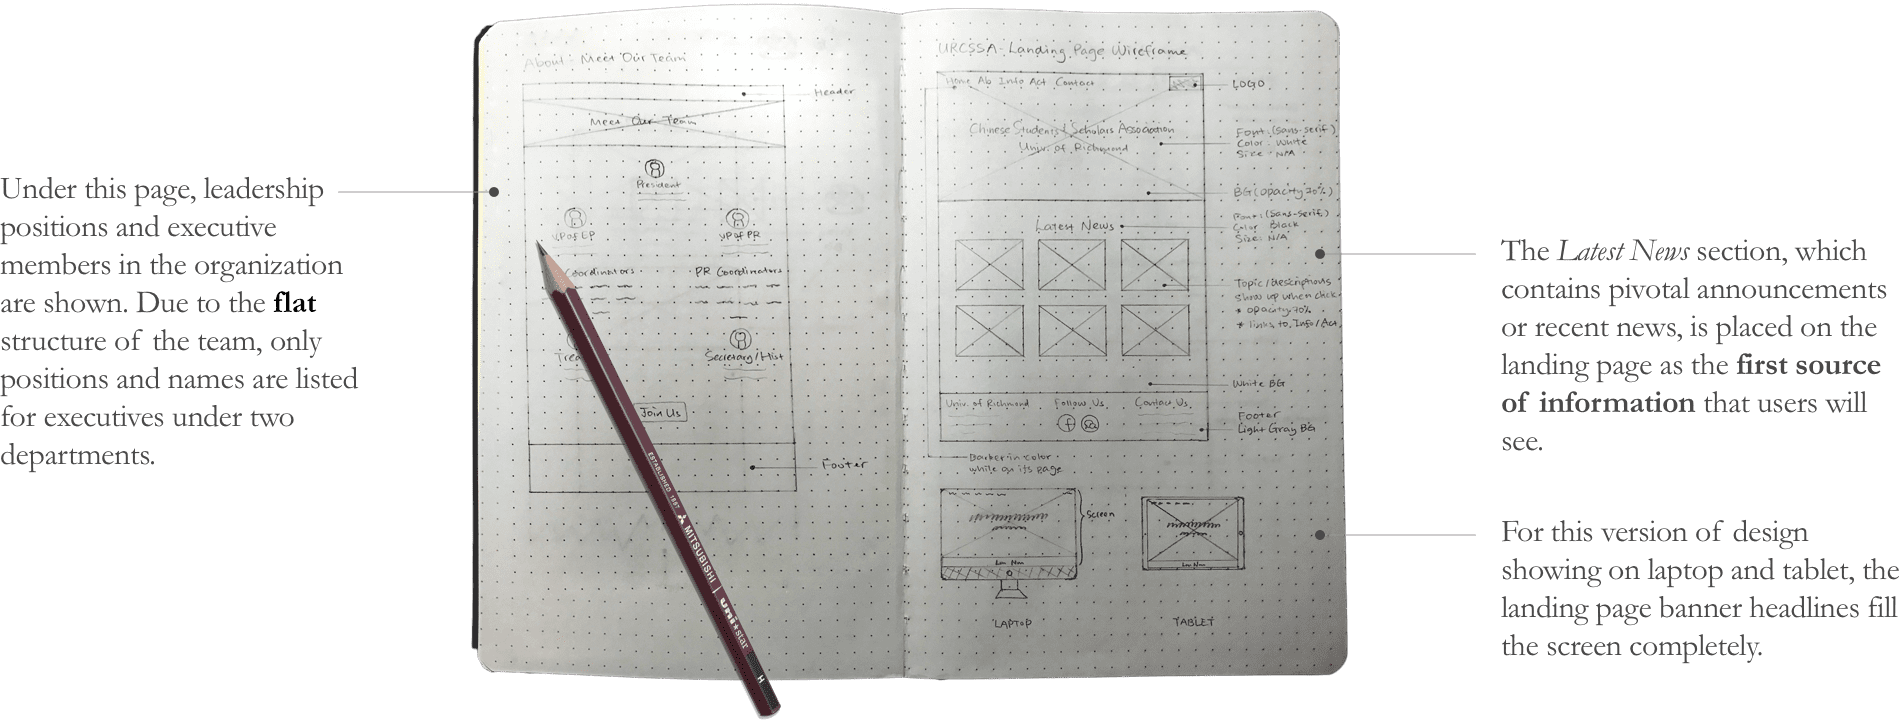 Under this page, leadership
positions and executive
members in the organization
are shown. Due to the flat
structure of the team, only
positions and names are listed
for executives under two
departments.
About: Meet Our Team
Header
Meet Our Team
President
VP of EP
VP of PR
Coordinators
PR Coordinators
Secretary/Hist
Join Us
Footer
ESTABLISHED 1887 MITSUBISHI uni★star H
URCSSA- Landing Page Wireframe
Home Ab Info Act Contact
LOGO
Chinese Students / Scholars Association
Univ. of Richmond
Font (sans-serif)
Color: White
Size: N/A
BG (opacity 70%)
Latest News
Font (sans-serif)
Color Black
Size: N/A
Topic/Descriptions
show up when click
* opacity 70%
* links to Info/Act
White BG
Univ. of Richmond
Follow Us
Contact Us
f
Footer
Light Gray BG
Darker in color
while on its page
Screen
LAPTOP
TABLET
The Latest News section, which
contains pivotal announcements
or recent news, is placed on the
landing page as the first source
of information that users will
see.
For this version of design
showing on laptop and tablet, the
landing page banner headlines fill
the screen completely.